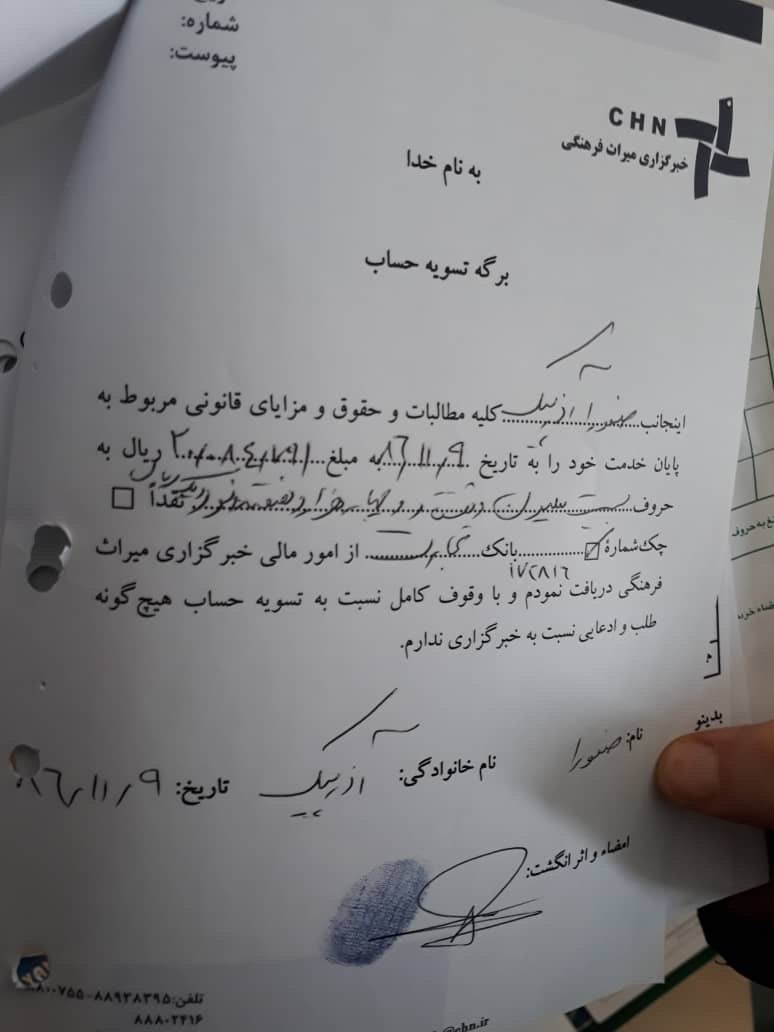 شماره:
پیوست:
CHN
خبرگزاری میراث فرهنگی
به نام خدا
برگه تسویه حساب
اینجانب ......... کلیه مطالبات و حقوق و مزایای قانونی مربوط به
پایان خدمت خود را به تاریخ ۸۶/۱۱/۹ به مبلغ ......... ریال به
حروف ......... نقداً □
چک شمارهٔ ☑ ......... بانک ......... از امور مالی خبرگزاری میراث
۱۷۲۸۱۶
فرهنگی دریافت نمودم و با وقوف کامل نسبت به تسویه حساب هیچ گونه
طلب و ادعایی نسبت به خبرگزاری ندارم.
بدینو
نام: نام خانوادگی: تاریخ: ۸۶/۱۱/۹
امضاء و اثر انگشت:
تلفن: ۸۸۹۳۸۳۹۵-
۸۸۸۰۲۴۱۶
@chn.ir
غ به حروف
ضاء خرید